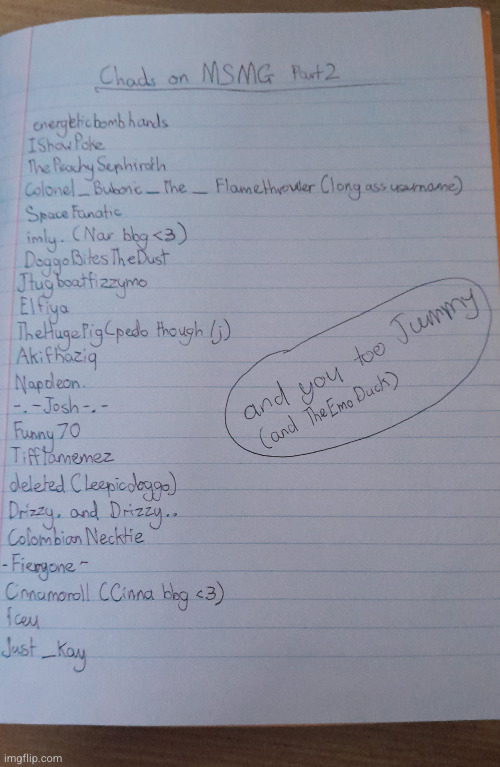 Chads on MSMG Part 2
energeticbombhands
IShowPoke
ThePeachySephiroth
Colonel_Bubonic_The_Flamethrower (long ass username)
SpaceFanatic
imly. (Nar bbg <3)
DoggoBitesTheDust
Jtugboatfizzymo
Elfiya
TheHugePig (pedo though /j)
Akifhaziq
Napoleon.
-.-Josh-.-
Funny70
Tifflamemez
deleted (leepicdoggo)
Drizzy. and Drizzy..
ColombianNecktie
-Fieryone-
Cinnamoroll (Cinna bbg <3)
Iceu
Just_Kay
and you too Jummy
(and TheEmoDuck)
imgflip.com